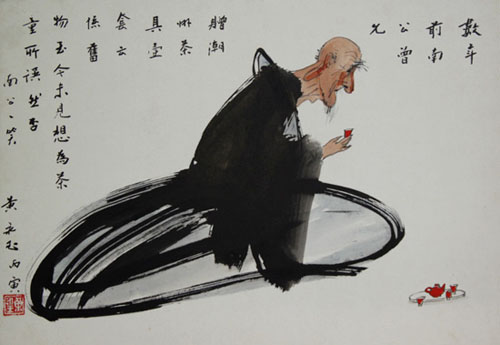 數年
前南
公曾
允
贈潮
州茶
具壹
套云
係舊
物至今未見想為茶
童所誤然否
南公一笑
黃永玉丙寅